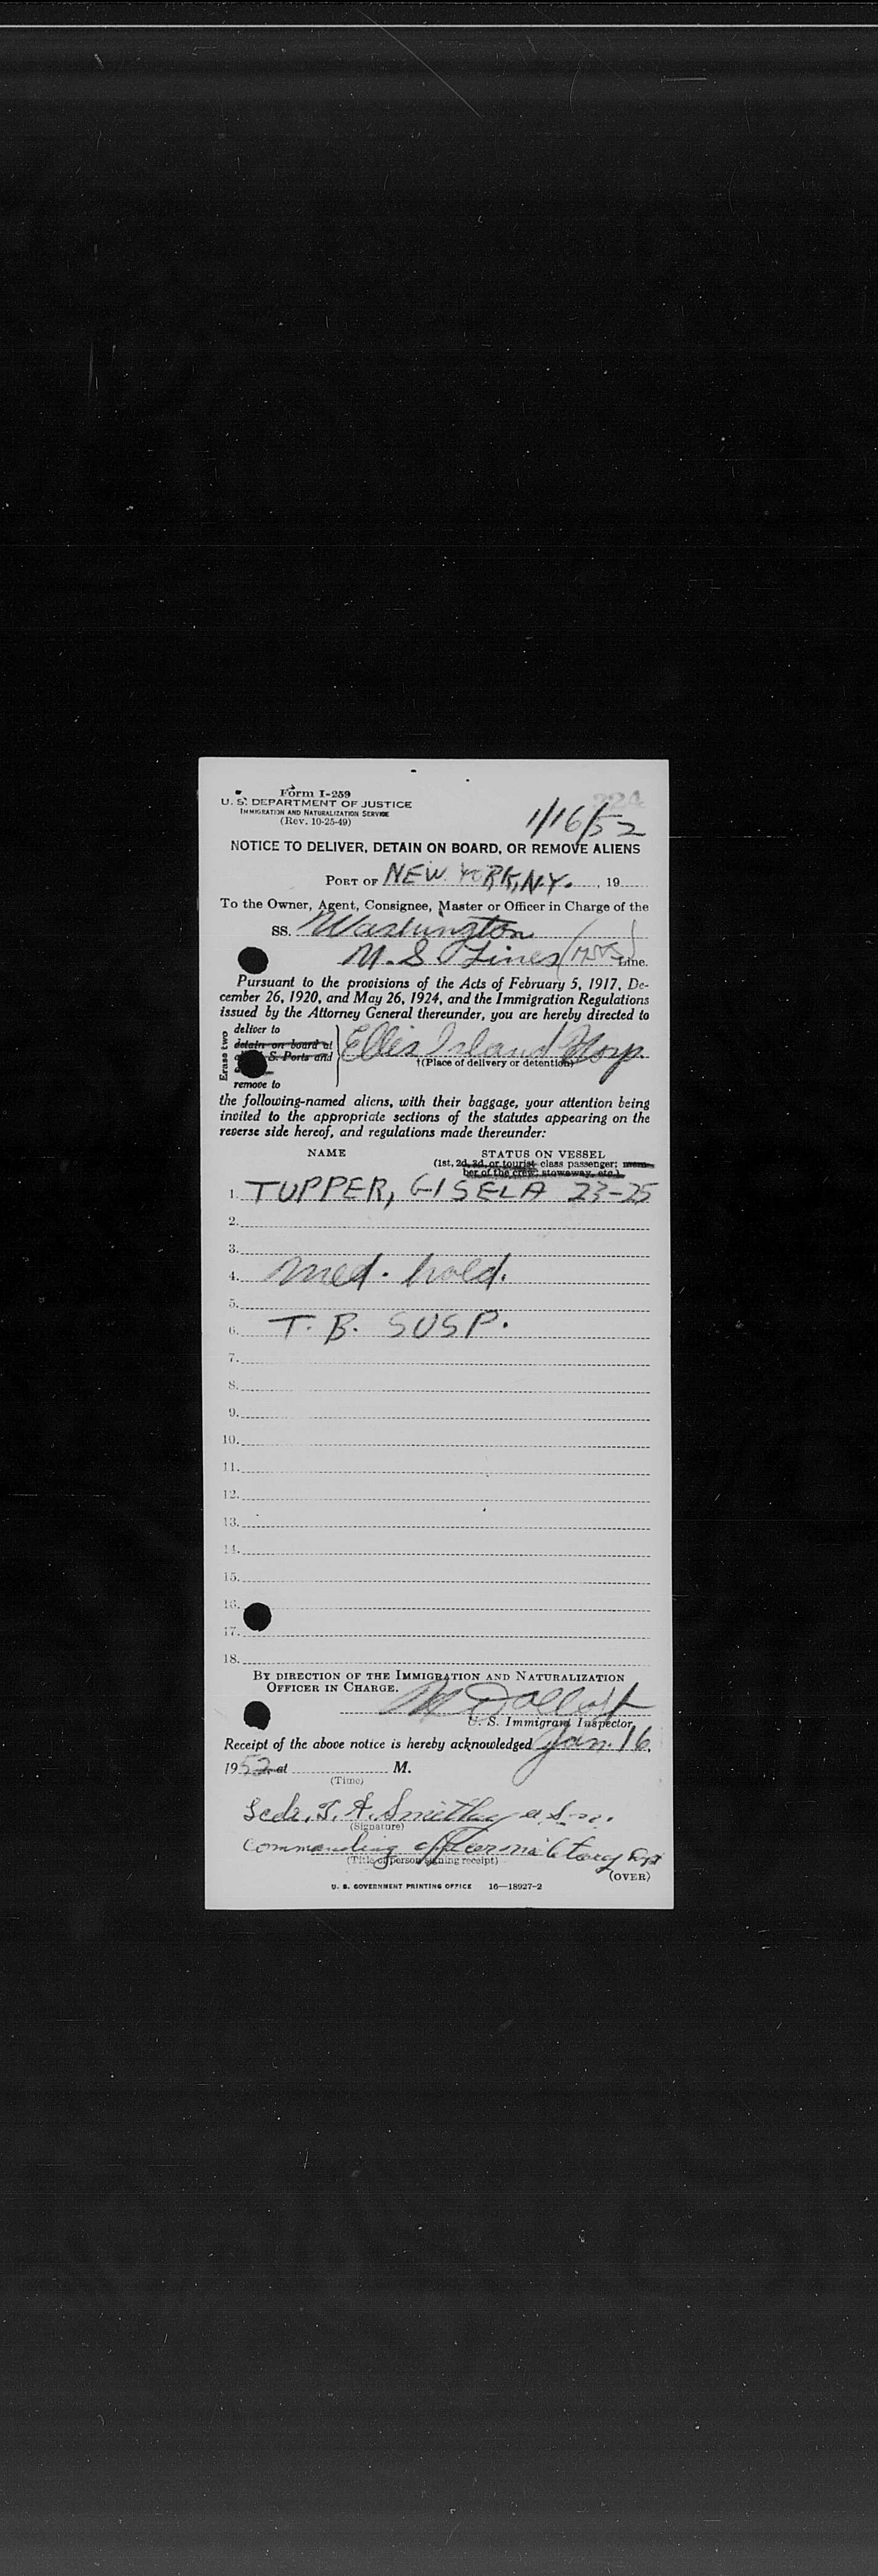 224
Form I-259
U. S. DEPARTMENT OF JUSTICE
IMMIGRATION AND NATURALIZATION SERVICE
(Rev. 10-25-49)
1/16/52
NOTICE TO DELIVER, DETAIN ON BOARD, OR REMOVE ALIENS
PORT OF NEW YORK, N.Y. , 19
To the Owner, Agent, Consignee, Master or Officer in Charge of the
SS. Washington
U.S Lines Line.
Pursuant to the provisions of the Acts of February 5, 1917, De-
cember 26, 1920, and May 26, 1924, and the Immigration Regulations
issued by the Attorney General thereunder, you are hereby directed to
Erase two
deliver to
detain on board at
S. Ports and
remove to
Ellis Island Hosp
†(Place of delivery or detention)
the following-named aliens, with their baggage, your attention being
invited to the appropriate sections of the statutes appearing on the
reverse side hereof, and regulations made thereunder:
NAME STATUS ON VESSEL
(1st, 2d, 3d, or tourist class passenger; mem-
ber of the crew; stowaway, etc.)
1. TUPPER, GISELA 23-25
2.
3.
4. med. hold.
5.
6. T. B. SUSP.
7.
8.
9.
10.
11.
12.
13.
14.
15.
16.
17.
18.
BY DIRECTION OF THE IMMIGRATION AND NATURALIZATION
OFFICER IN CHARGE.
U. S. Immigrant Inspector.
Receipt of the above notice is hereby acknowledged Jan. 16,
1952 at M.
(Time)
Lcdr. T. A. U.S.N.
(Signature)
Commanding officer military Dept
(Title of person signing receipt)
(OVER)
U. S. GOVERNMENT PRINTING OFFICE 16—18927-2